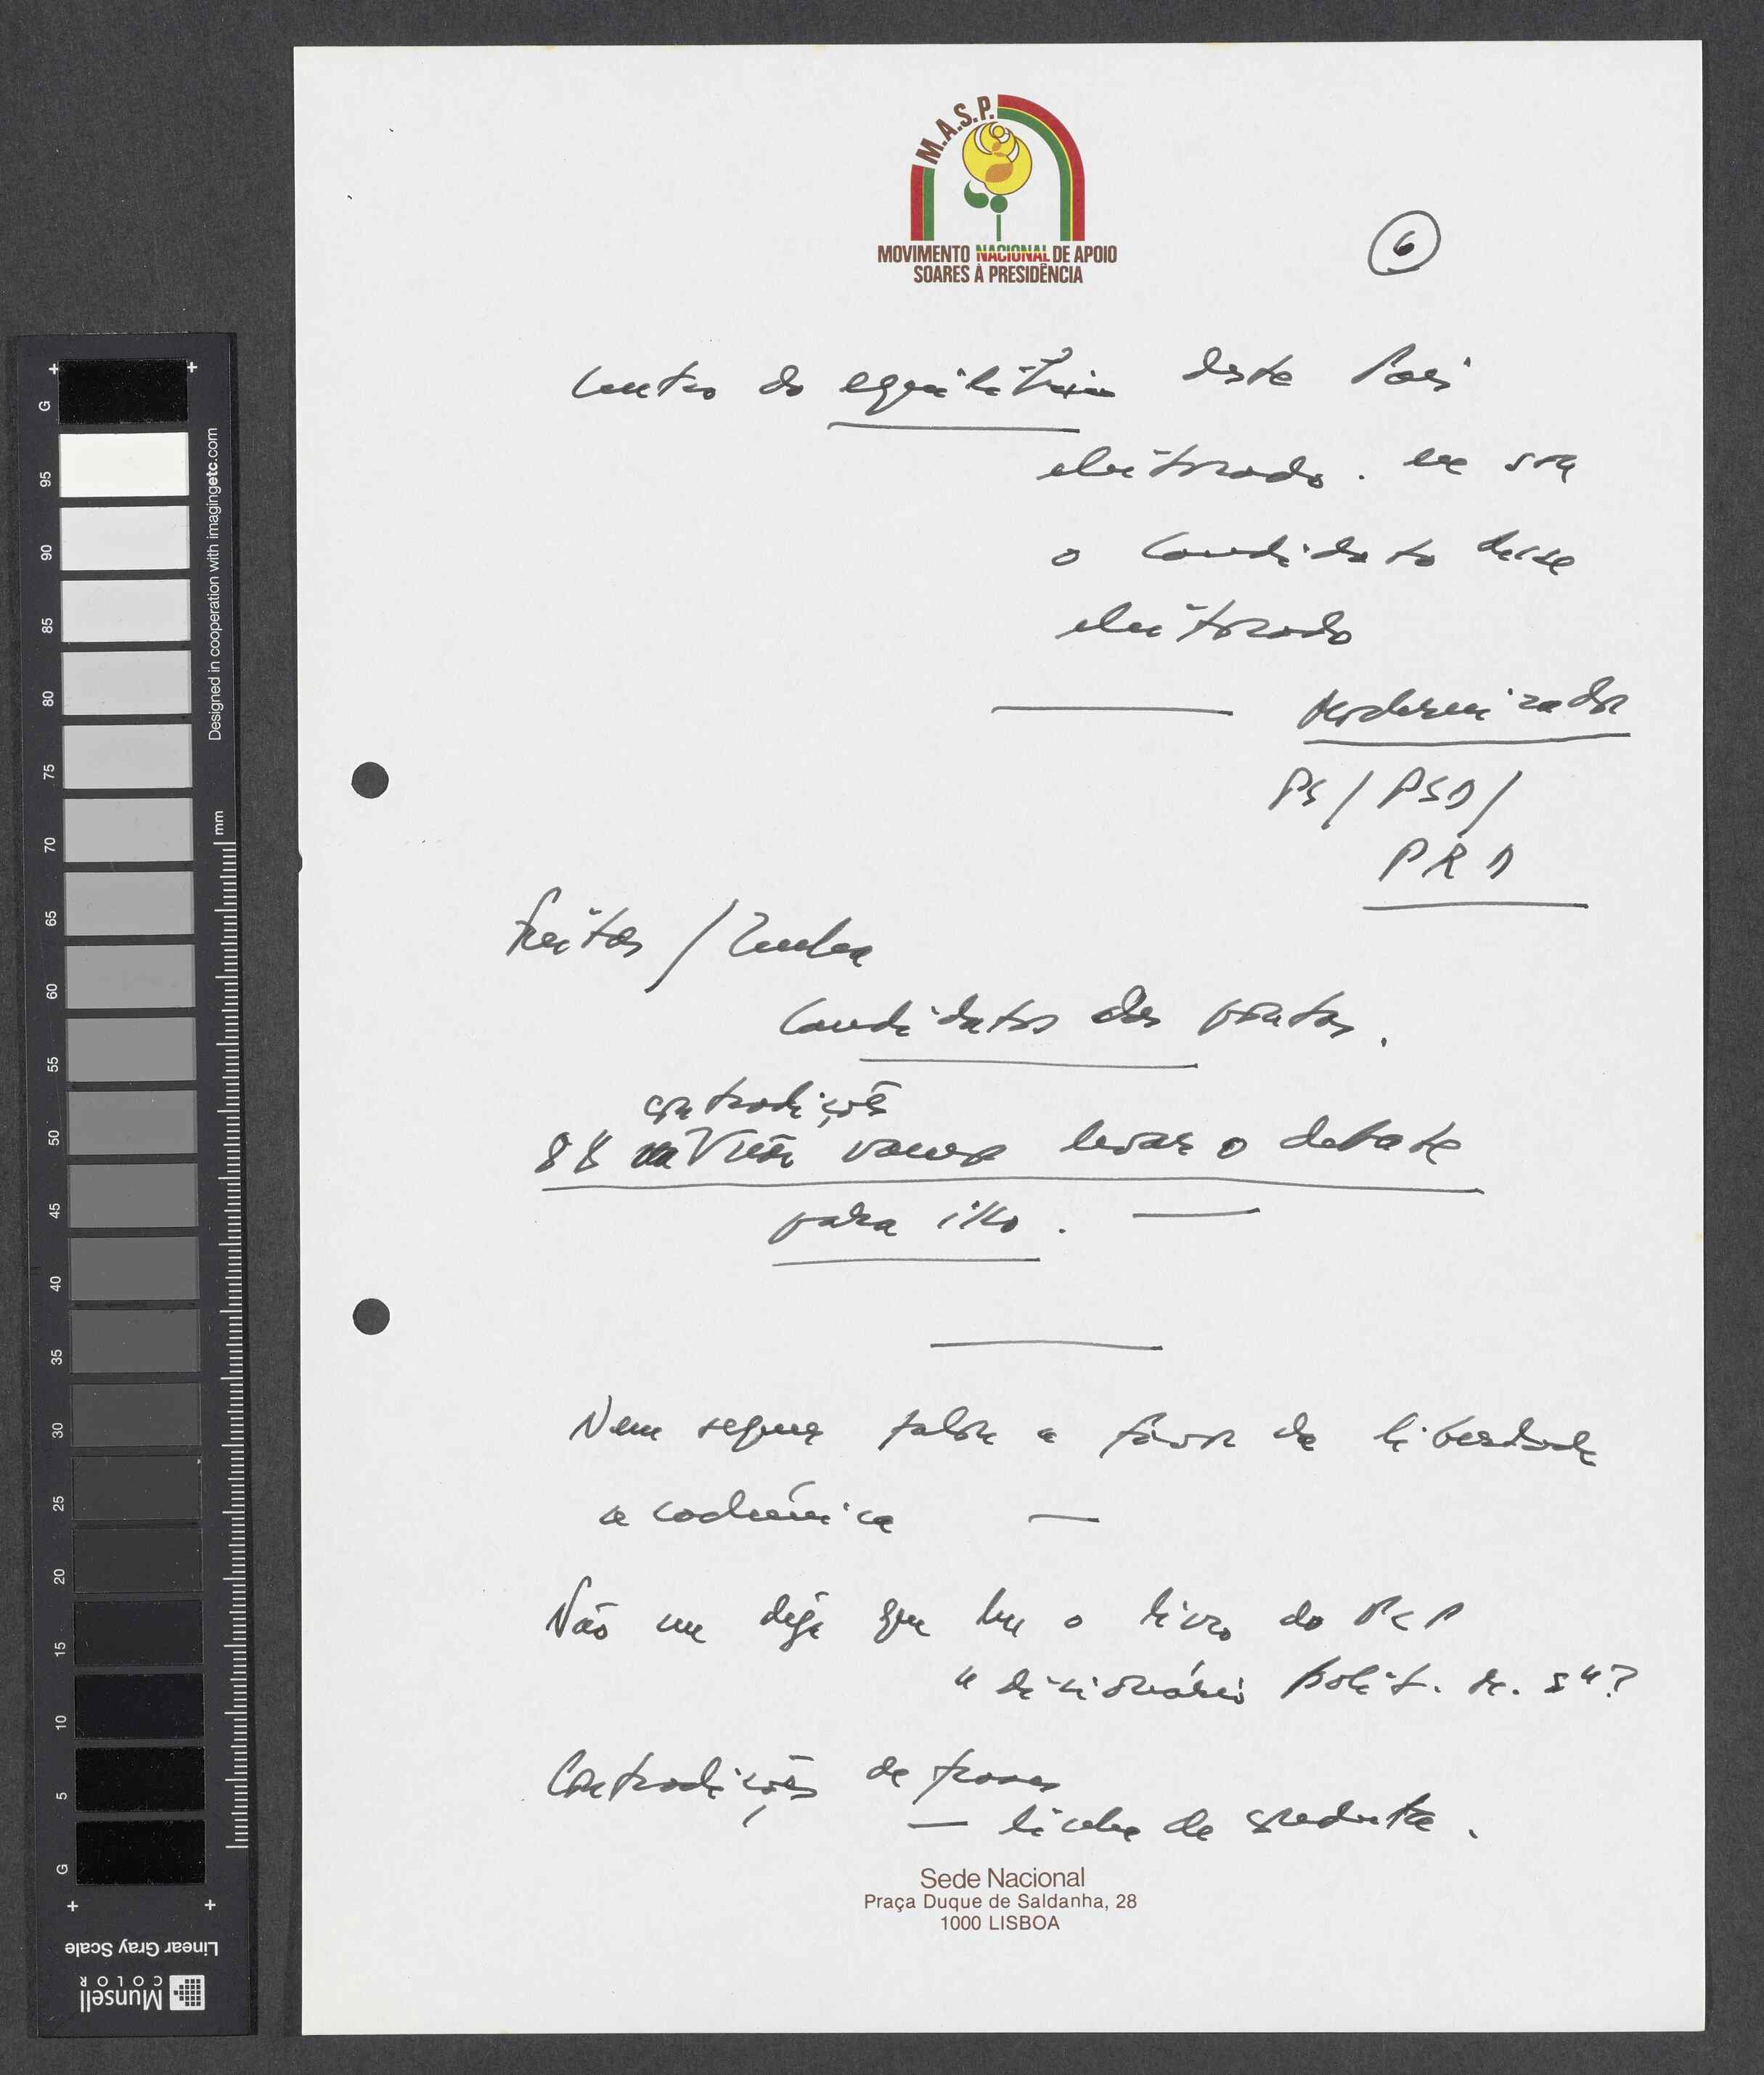 M.A.S.P.
MOVIMENTO NACIONAL DE APOIO
SOARES À PRESIDÊNCIA
6
Centro do equilíbrio deste País
eleitorado. eu sou
o candidato desse
eleitorado
modernizador
PS / PSD /
PRD
Freitas / Zenha
Candidatos das pontas.
contradições
vamos levar o debate
para isso.
Nem sequer falou a favor da liberdade
académica —
Não me diga que leu o livro do PCP
"dicionário polit. de. S"?
Contradições de frases
— de esquerda.
Sede Nacional
Praça Duque de Saldanha, 28
1000 LISBOA
G
95
90
85
80
75
70
65
60
55
50
45
40
35
30
25
20
15
10
5
G
Designed in cooperation with imagingetc.com
mm
Linear Gray Scale
Munsell
COLOR